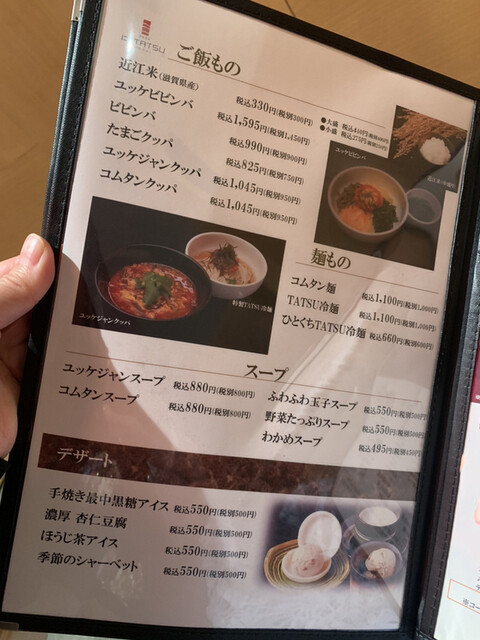 TATSU
ご飯もの
近江米(滋賀県産) 税込330円(税別300円)
●大盛 税込440円(税別400円)
●小盛 税込275円(税別250円)
ユッケビビンバ 税込1,595円(税別1,450円)
ビビンバ 税込990円(税別900円)
たまごクッパ 税込825円(税別750円)
ユッケジャンクッパ 税込1,045円(税別950円)
コムタンクッパ 税込1,045円(税別950円)
ユッケビビンバ
特製TATSU冷麺
ユッケジャンクッパ
麺もの
コムタン麺 税込1,100円(税別1,000円)
TATSU冷麺 税込1,100円(税別1,000円)
ひとくちTATSU冷麺 税込660円(税別600円)
スープ
ユッケジャンスープ 税込880円(税別800円)
コムタンスープ 税込880円(税別800円)
ふわふわ玉子スープ 税込550円(税別500円)
野菜たっぷりスープ 税込550円(税別500円)
わかめスープ 税込495円(税別450円)
デザート
手焼き最中黒糖アイス 税込550円(税別500円)
濃厚 杏仁豆腐 税込550円(税別500円)
ほうじ茶アイス 税込550円(税別500円)
季節のシャーベット 税込550円(税別500円)
※コー